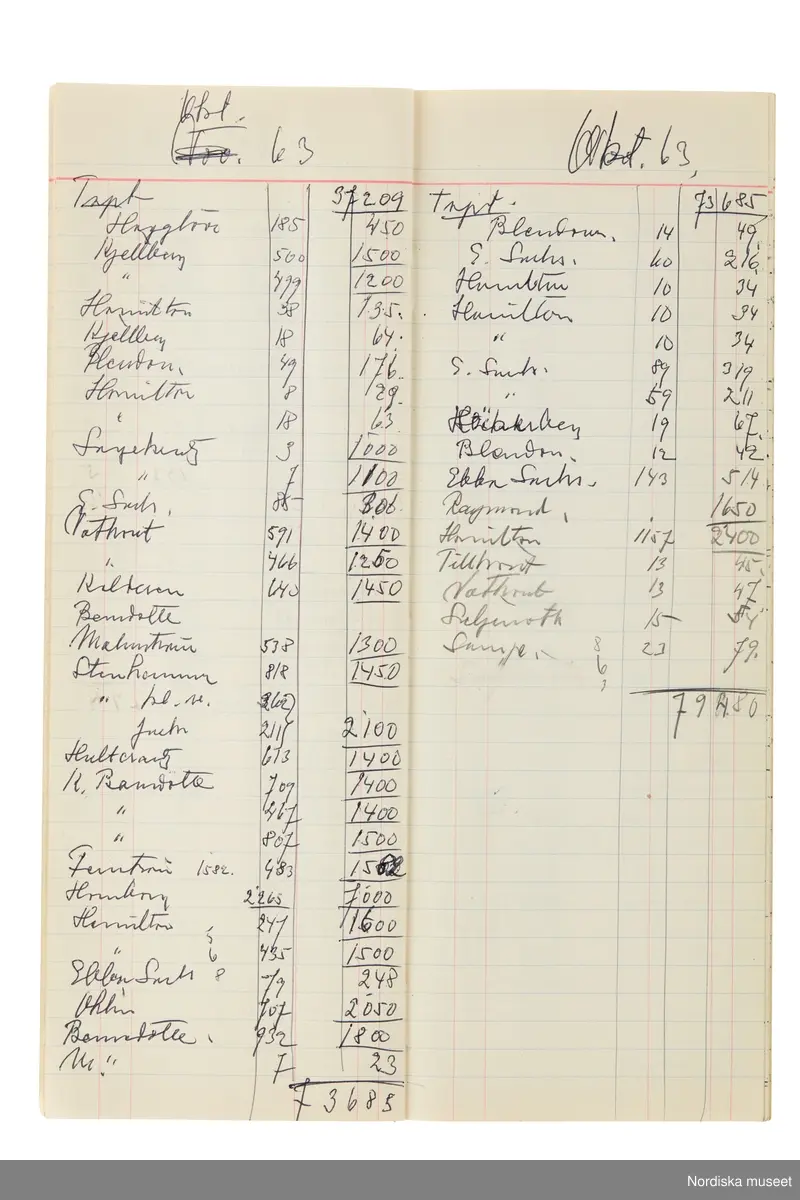 Okt.
63
Trpt 37209
Häggbom 185 450
Kjellberg 500 1500
" 499 1200
Hamilton 38 135.
Kjellberg 18 64.
Blendow. 49 176.
Hamilton 8 29.
" 18 65
3 1000
" 7 1100
E. Sachs. 85 306
Vathout 591 1400
" 466 1250
640 1450
Bernadotte
Malmström 538 1300
Stenhammar 818 1450
" kl. m. 2602
2115 2100
Hultcrantz 613 1400
K. Bernadotte 709 1400
" 467 1400
" 807 1500
Fernström 1582. 483 1582
Hamberg 2265 7000
Hamilton 5 247 1600
" 6 435 1500
Ebba Sachs 8 79 248
Ohlin 707 2050
Bernadotte. 932 1800
M. " 7 23
73685
Okt. 63,
Trpt. 73685
Blendow. 14 49.
E. Sachs. 60 216.
Hamilton 10 34
Hamilton 10 34
" 10 34
E. Sachs. 89 319
" 59 211
19 67.
Blendow. 12 42.
Ebba Sachs. 143 514
Raymond. 1650
Hamilton 1157 2400
Tillhout 13 45.
Vathout 13 47
15 54
Sampe. 8 23 79.
6
3
79480
Nordiska museet